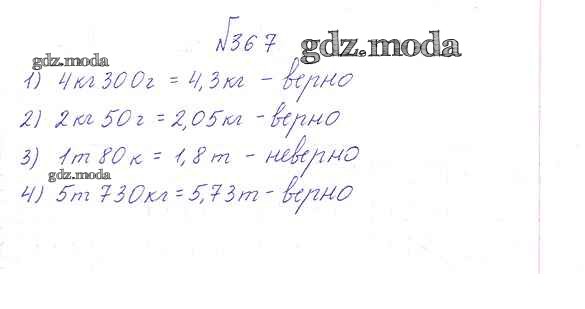 №367 gdz.moda
gdz.moda
1) 4кг 300г = 4,3кг - верно
2) 2кг 50г = 2,05кг - верно
3) 1т 80к = 1,8т - неверно
gdz.moda
4) 5т 730кг = 5,73т - верно